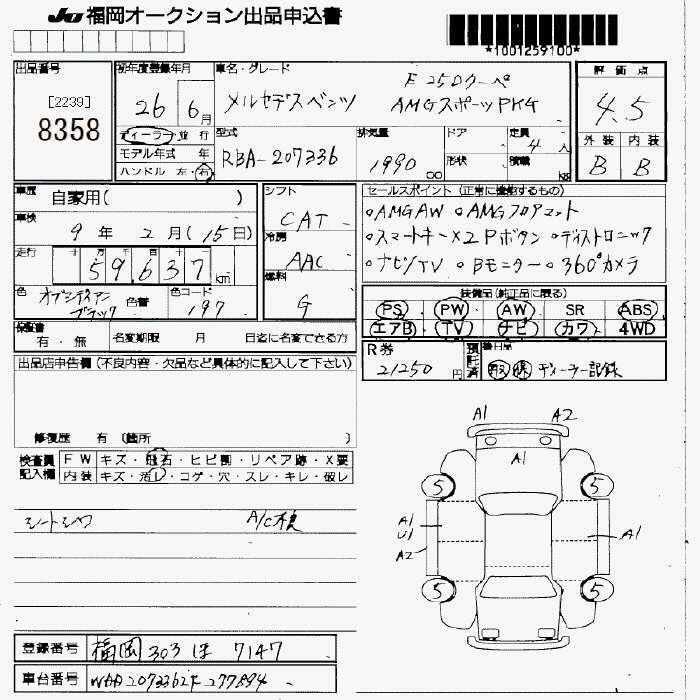 JU 福岡オークション出品申込書
*1001259100*
出品番号
[2239]
8358
初年度登録年月
26 6月
ディーラー・並行
モデル年式 年
ハンドル 左・右
車名・グレード
E250クーペ
メルセデスベンツ AMGスポーツPKG
型式
RBA-207336
排気量
1990 cc
ドア
形状
定員
4人
積載 kg
評価点
4.5
外装 内装
B B
車歴 自家用( )
車検
9年 2月(15日)
走行 十 万 千 百 十
59,637 km
色 オブシディアンブラック 色替 色コード 197
シフト
CAT
冷房
AAC
燃料
G
セールスポイント(正常に機能するもの)
○AMGAW ○AMGフロアマット
○スマートキー×2Pボタン ○ディストロニック
○ナビTV ○Bモニター ○360°カメラ
装備品(純正品に限る)
PS PW AW SR ABS
エアB TV ナビ カワ 4WD
保証書 有・無
名変期限 月 日迄に名変できる方
R券
21250円
預託済
後日品
取 保 ディーラー記録
出品店申告欄(不良内容・欠品など具体的に記入して下さい)
修復歴 有(箇所 )
検査員記入欄
FW キズ・飛石・ヒビ割・リペア跡・X要
内装 キズ・汚レ・コゲ・穴・スレ・キレ・破レ
シートシワ A/C不良
A1 A2
A1
5 5
A1
U1
A2
A1
5 5
登録番号 福岡 303 ほ 7147
車台番号 WDD2073362F277894